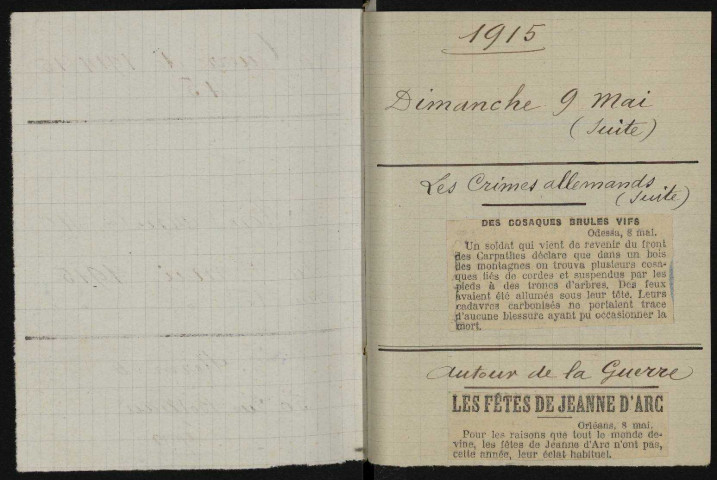 1915
Dimanche 9 Mai
(Suite)
Les Crimes allemands
(Suite)
DES COSAQUES BRULES VIFS
Odessa, 8 mai.
Un soldat qui vient de revenir du front
des Carpathes déclare que dans un bois
des montagnes on trouva plusieurs cosa-
ques liés de cordes et suspendus par les
pieds à des troncs d'arbres. Des feux
avaient été allumés sous leur tête. Leurs
cadavres carbonisés ne portaient trace
d'aucune blessure ayant pu occasionner la
mort.
Autour de la Guerre
LES FÊTES DE JEANNE D'ARC
Orléans, 8 mai.
Pour les raisons que tout le monde de-
vine, les fêtes de Jeanne d'Arc n'ont pas,
cette année, leur éclat habituel.